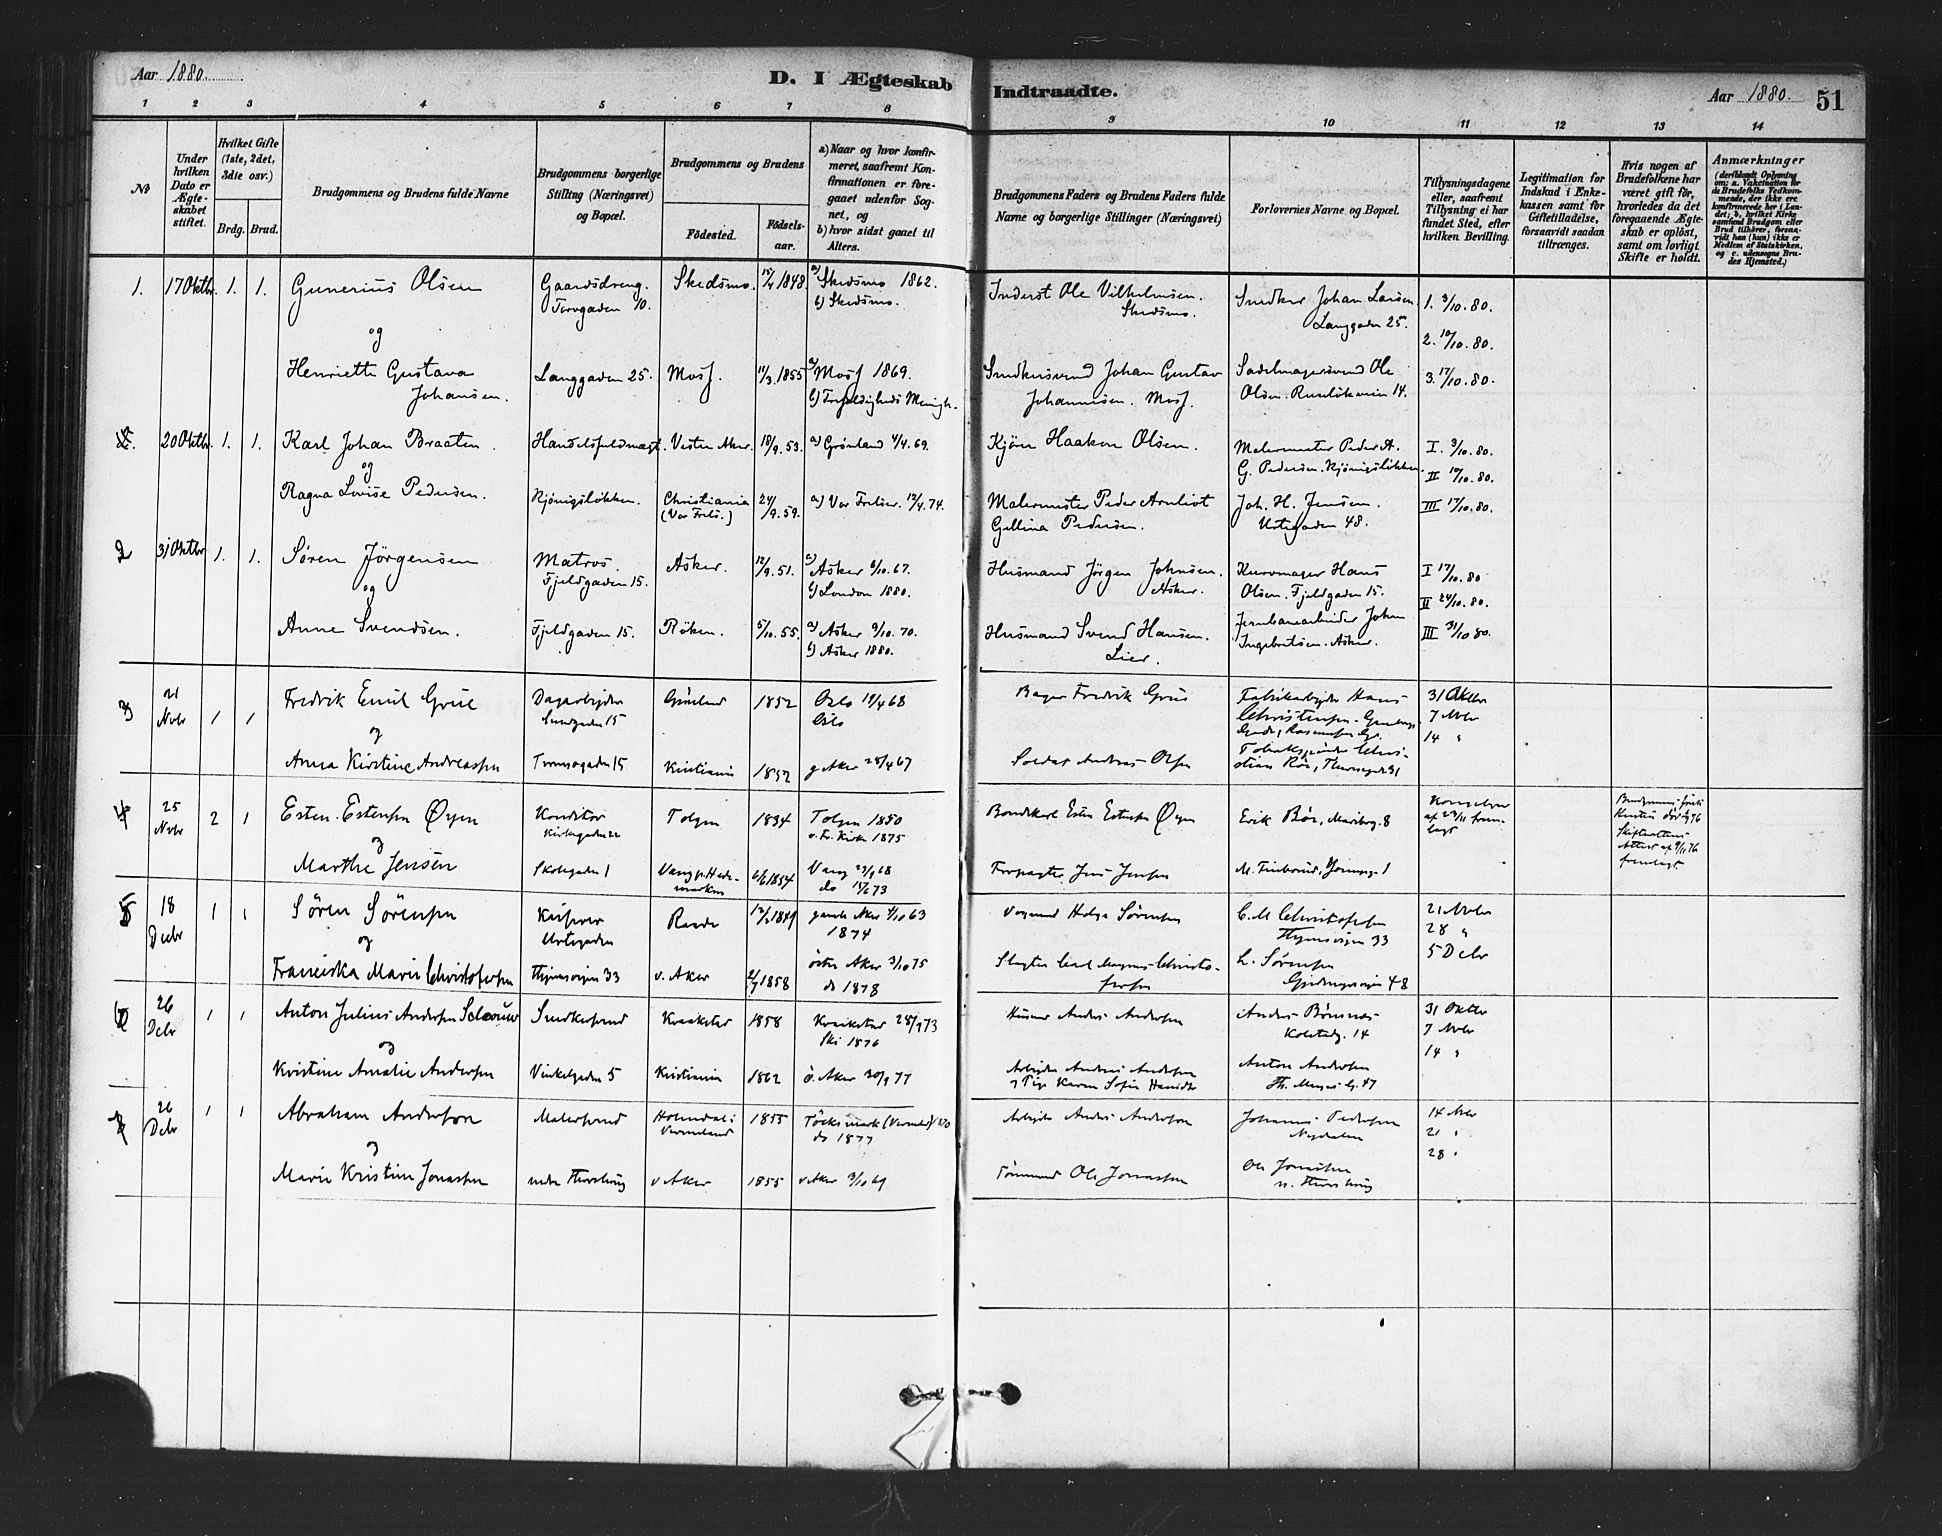 Aar 1880.
D. I Ægteskab Indtraadte.
Aar 1880. 51
1 2 3 4 5 6 7 8 9 10 11 12 13 14
No
Under hvilken Dato er Ægteskabet stiftet.
Hvilket Gifte (1ste, 2det, 3die osv.)
Brdg. Brud.
Brudgommens og Brudens fulde Navne
Brudgommens borgerlige Stilling (Næringsvei) og Bopæl.
Brudgommens og Brudens
Fødested.
Fødselsaar.
a) Naar og hvor konfirmeret, saafremt Konfirmationen er foregaaet udenfor Sognet, og
b) hvor sidst gaaet til Alters.
Brudgommens Faders og Brudens Faders fulde Navne og borgerlige Stillinger (Næringsvei)
Forlovernes Navne og Bopæl.
Tillysningsdagene eller, saafremt Tillysning ei har fundet Sted, efter hvilken Bevilling.
Legitimation for Indskud i Enkekassen samt for Giftetilladelse, forsaavidt saadan tiltrænges.
Hvis nogen af Brudefolkene har været gift før, hvorledes da det foregaaende Ægteskab er opløst, samt om lovligt Skifte er holdt.
Anmærkninger (deriblandt Oplysning om: a. Vakcination for de Brudefolks Vedkommende, der ikke ere konfirmerede her i Landet; b. hvilket Kirkesamfund Brudgom eller Brud tilhører, forsaavidt han (hun) ikke er Medlem af Statskirken, og c. udensogns Brudes Hjemsted.)
1. 17 Oktbr. 1. 1. Gunerius Olsen Gaardsdreng. Skedsmo. 1848 a) Skedsmo 1862. Inderst Ole Vilhelmsen. Snedker Johan Larsen. 1. 3/10. 80.
Torvgaden 10. b) Skedsmo. Skedsmo. Langgaden 25.
og 2. 10/10. 80.
Henriette Gustava Langgaden 25. Moss. 11/3. 1855 a) Moss 1869. Snedkersvend Johan Gustav Sadelmagersvend Ole 3. 17/10. 80.
Johansen. b) Trefoldigheds Menigh. Johannesen. Moss. Olsen. Ruseløkveien 14.
20 Oktbr. 1. 1. Karl Johan Braaten. Handelsfuldmægt. Vestre Aker. 18/9. 53. a) Grønland 4/4. 69. Kjøre Haakon Olsen. Malermester Peder A. I. 3/10. 80.
og G. Pedersen. Kjønigsløkken. II 10/10. 80.
Ragna Lovise Pedersen. Kjönigsløkken. Christiania 24/9. 59. a) Vor Frelser. 12/4. 74. Malermester Peder Arnliot Joh. H. Jensen. III 17/10. 80.
(Vor Frels.) Gellina Pedersen. Urtegaden 48.
2 31 Oktbr 1. 1. Søren Jörgensen Matros. Asker. 12/9. 51. a) Asker 6/10. 67. Husmand Jörgen Johnsen. Kurvmager Hans I 17/10. 80
Fjeldgaden 15. b) London 1880. Asker. Olsen. Fjeldgaden 15. II 24/10. 80.
og
Anne Svendsen. Fjeldgaden 15. Röken. 5/10. 55. a) Asker 9/10. 70. Husmand Svend Hansen. Jernbanearbeider Johan III 31/10 80.
b) Asker 1880. Lier. Ingebritsen. Asker.
3 21 Novbr 1 1 Fredrik Emil Grüe Dagarbejder Grønland 1852 Oslo 19/4 68 Bager Fredrik Grüe Fabrikarbejder Hans 31 Oktbr
15 Oslo Christensen 7 Novbr
og 14 "
Anna Kirstine Andreassen Tromsøgaden 15 Kristiania 1852 g Aker 28/4 67 Soldat Andreas Olsen 31
4 25 Novbr 2 1 Esten Estensen Øyen Konditor Tolgen 1834 Tolgen 1850 Bondkarl Esten Estensen Øyen Erik Röe, Maribog. 8
Kirkegaden 22 v. Fr. Kirke 1875 af 23/11 fremlagt
og
Marthe Jensen Skolegaden 1 Vang p. Hedemarken 1854 Vang 68 Forpagter Jens Jensen
do 73
5 18 Decbr 1 1 Søren Sørensen Raade 1849 gamle Aker 4/10 63 Helge Sørensen C. M. Christophersen 21 Novbr
Urtegaden 1874 33 28 "
og 5 Decbr
Franciska Marie Christophersen 33 v. Aker 1858 östre Aker 3/10 75 Slagter Carl Magnus Christophersen L. Sørensen
do 1878 48
6 26 Decbr 1 1 Anton Julius Andersen Snedkersvend Kraakstad 1858 Kraakstad 28/9 73 Husmd Anders Andersen Anders Bönsnæs 31 Oktbr
Ski 1876 Kolstadg. 14 7 Novbr
og 14 "
Kristine Amalie Andersen Vinkelgaden 5 Kristiania 1862 ö. Aker 30/9 77 Arbejder Andreas Andersen Anton Andersen
Th. Meyers G. 47
7 26 Decbr 1 1 Abraham Andersson Malersvend Holmdal i 1855 Töcksmark (Vermland) Arbejder Anders Andersson Johannes Pedersen 14 Novbr
Vermeland do 1877 Nydalen 21 "
og 28 "
Marie Kristine Jonassen nedre Thorshoug v Aker 1855 v Aker 3/10 69 Tömmermd Ole Jonassen Ole Jonassen
n. Thorshoug